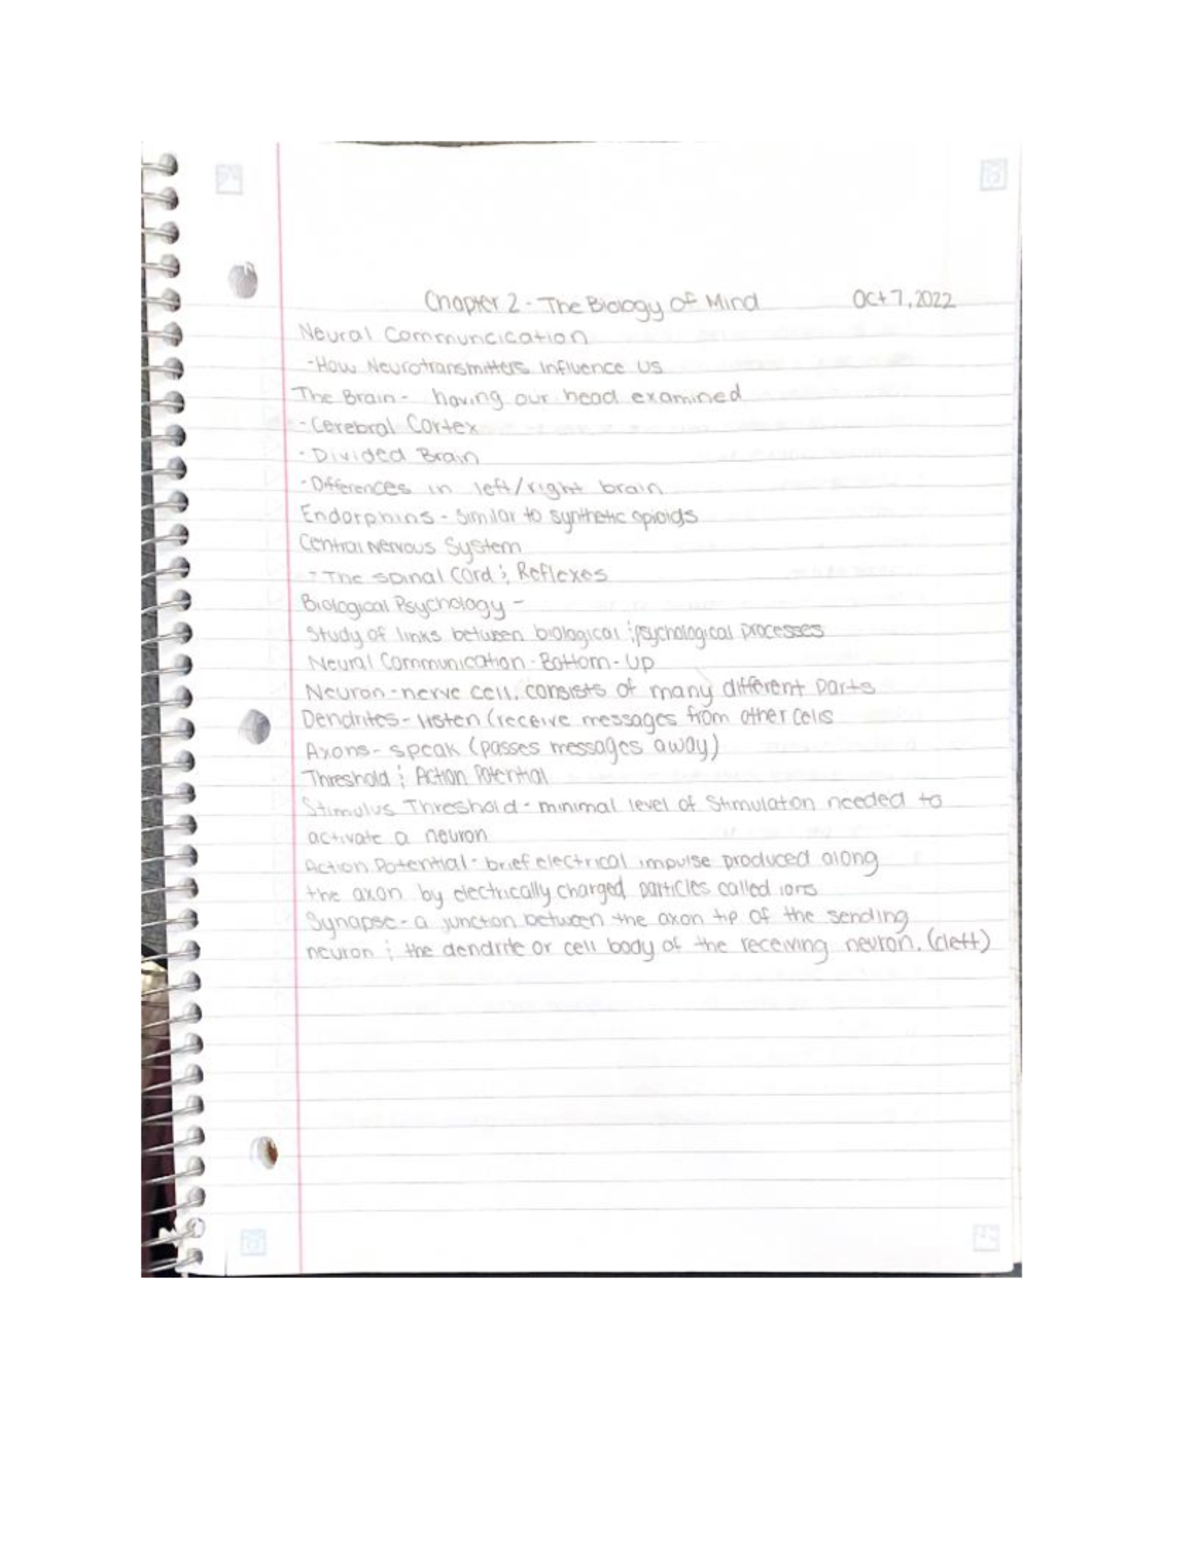 Chapter 2 - The Biology of Mind Oct 7, 2022
Neural Communcication
-How Neurotransmitters Influence Us
The Brain - having our head examined
-Cerebral Cortex
-Divided Brain
-Differences in left/right brain
Endorphins - Similar to synthetic opioids
Central Nervous System
- The spinal cord ; Reflexes
Biological Psychology -
Study of links between biological ; psychological processes
Neural Communication - Bottom - Up
Neuron - nerve cell. consists of many different parts
Dendrites - listen (receive messages from other cells
Axons - speak (passes messages away)
Threshold ; Action Potential
Stimulus Threshold - minimal level of stimulaton needed to
activate a neuron
Action Potential - brief electrical impulse produced along
the axon by electrically charged particles called ions
Synapse - a junction between the axon tip of the sending
neuron ; the dendrite or cell body of the receiving neuron. (cleft)